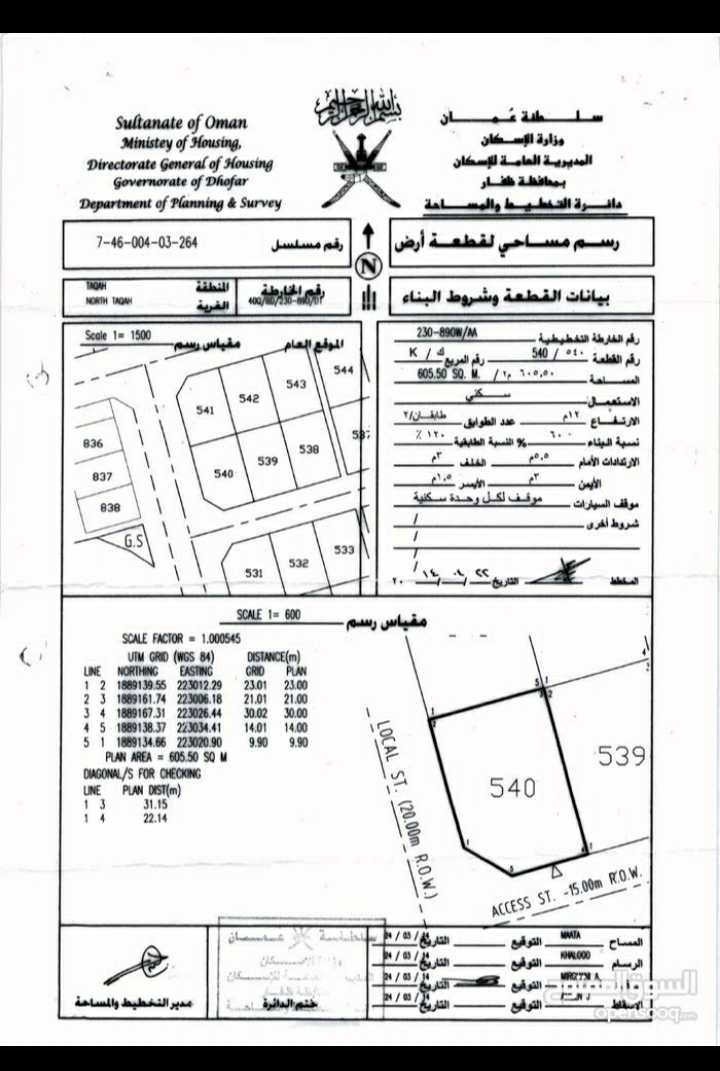 بسم الله الرحمن الرحيم
Sultanate of Oman
Ministey of Housing,
Directorate General of Housing
Governorate of Dhofar
Department of Planning & Survey
سلطنة عُمان
وزارة الإسكان
المديرية العامة للإسكان
بمحافظة ظفار
دائرة التخطيط والمساحة
7-46-004-03-264 رقم مسلسل
N
رسم مساحي لقطعة أرض
TAQAH المنطقة
NORTH TAQAH القرية
رقم الخارطة
بيانات القطعة وشروط البناء
Scale 1= 1500 مقياس رسم الموقع العام
544
543
542
541
537
538
539
540
836
837
838
G.S
533
532
531
رقم الخارطة التخطيطية 230-890W/AA
رقم القطعة ٥٤٠ / 540 رقم المربع ك / K
المساحة ٦٠٥,٥٠ م٢ / 605.50 SQ. M.
الاستعمال سكني
الارتفاع ١٢م عدد الطوابق طابقان/٢
نسبة البناء ٦٠ % النسبة الطابقية ١٢٠ %
الارتدادات الأمام ٥,٥م الخلف ٣م
الأيمن ٣م الأيسر ١,٥م
موقف السيارات موقف لكل وحدة سكنية
شروط أخرى
المخطط التاريخ ٢٢ / ٤ / ١٤ ٢٠
SCALE 1= 600 مقياس رسم
SCALE FACTOR = 1.000545
UTM GRID (WGS 84) DISTANCE(m)
LINE NORTHING EASTING GRID PLAN
1 2 1889139.55 223012.29 23.01 23.00
2 3 1889161.74 223006.18 21.01 21.00
3 4 1889167.31 223026.44 30.02 30.00
4 5 1889138.37 223034.41 14.01 14.00
5 1 1889134.66 223020.90 9.90 9.90
PLAN AREA = 605.50 SQ M
DIAGONAL/S FOR CHECKING
LINE PLAN DIST(m)
1 3 31.15
1 4 22.14
540
539
LOCAL ST. (20.00m R.O.W.)
ACCESS ST. -15.00m R.O.W.
المساح MAATA التوقيع التاريخ 24 / 03 / 14
الرسام KHALOOD التوقيع التاريخ 24 / 03 / 14
التوقيع التاريخ 24 / 03 / 14
الإسقاط التوقيع التاريخ 24 / 03 / 14
ختم الدائرة
مدير التخطيط والمساحة
السوق المفتوح
opensooq.com